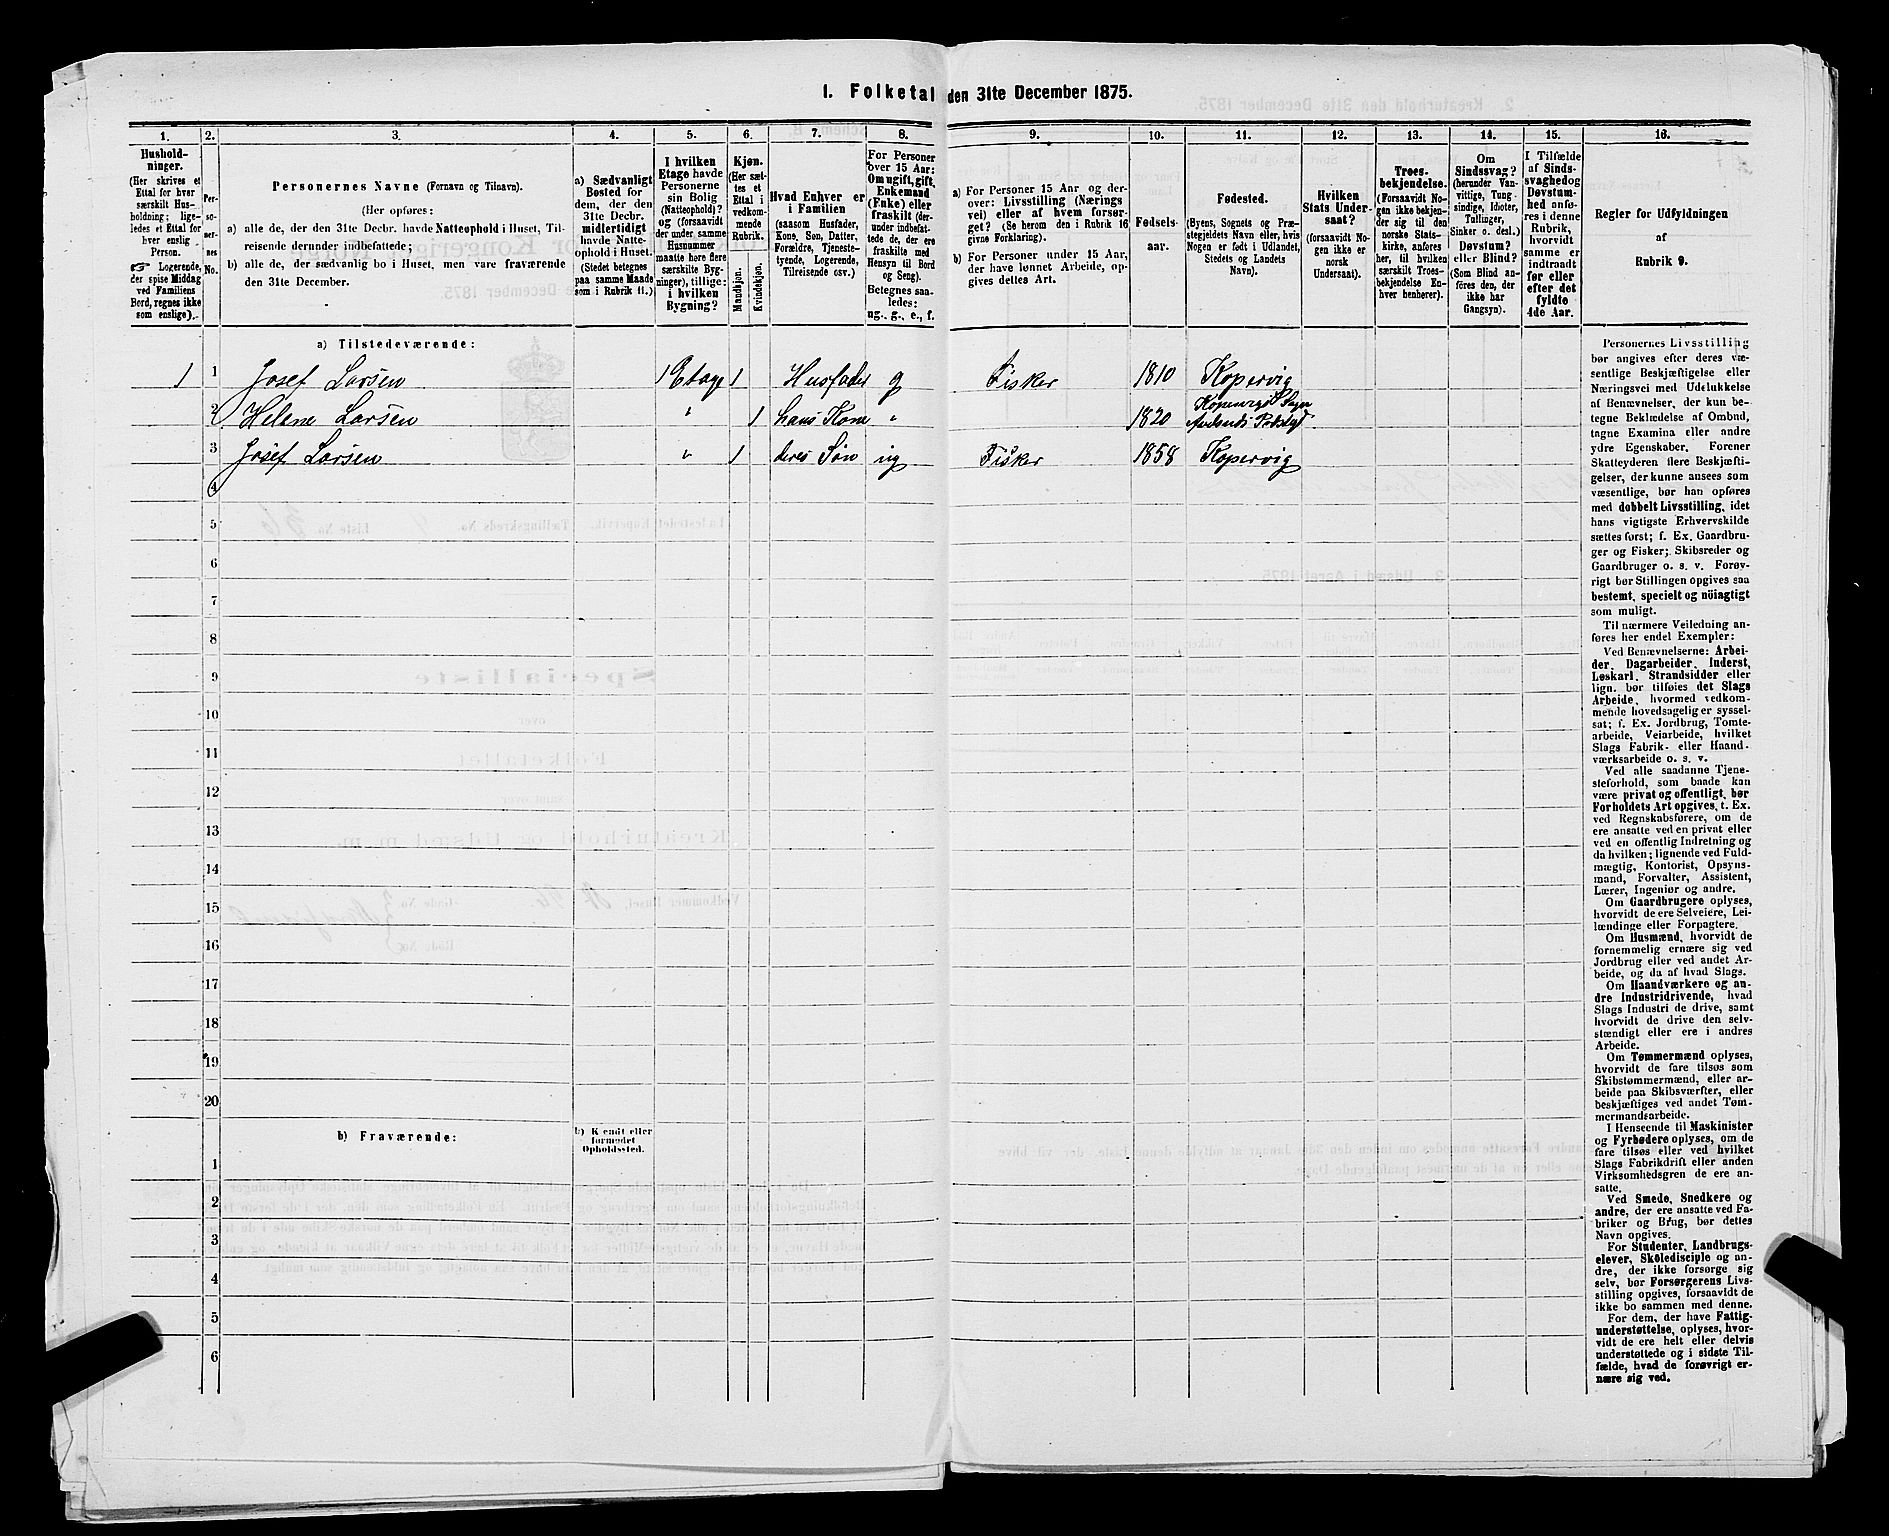 1. Folketal den 31te December 1875.
1.
Hushold-
ninger.
(Her skrives et
Ettal for hver
særskilt Hus-
holdning; lige-
ledes et Ettal for
hver enslig
Person.
☞ Logerende,
der spise Middag
ved Familiens
Bord, regnes ikke
som enslige).
2.
Per-
so-
ner-
nes
No.
3.
Personernes Navne (Fornavn og Tilnavn).
(Her opføres:
a) alle de, der den 31te Decbr. havde Natteophold i Huset, Til-
reisende derunder indbefattede;
b) alle de, der sædvanlig bo i Huset, men vare fraværende
den 31te December.
4.
a) Sædvanligt
Bosted for
dem, der den
31te Decbr.
midlertidigt
havde Natte-
ophold i Huset.
(Stedet betegnes
paa samme Maade
som i Rubrik 11.)
5.
I hvilken
Etage havde
Personerne
sin Bolig
(Natteophold)?
og (forsaavidt
der under samme
Husnummer
maatte høre flere
særskilte Byg-
ninger), tillige:
i hvilken
Bygning?
6.
Kjøn.
(Her sæt-
tes et
Ettal i
vedkom-
mende
Rubrik.
Mandkjøn.
Kvindekjøn.
7.
Hvad Enhver er
i Familien
(saasom Husfader,
Kone, Søn, Datter,
Forældre, Tjeneste-
tyende, Logerende,
Tilreisende osv.)
8.
For Personer
over 15 Aar:
Om ugift, gift,
Enkemand
(Enke) eller
fraskilt (der-
under indbefat-
tede de, der ere
fraskilte med
Hensyn til Bord
og Seng).
Betegnes saa-
ledes:
ug., g., e., f.
9.
a) For Personer 15 Aar og der-
over: Livsstilling (Nærings
vei) eller af hvem forsør-
get? (Se herom den i Rubrik 16
givne Forklaring).
b) For Personer under 15 Aar,
der have lønnet Arbeide, op-
gives dettes Art.
10.
Fødsels-
aar.
11.
Fødested.
(Byens, Sognets og Præ-
stegjeldets Navn eller, hvis
Nogen er født i Udlandet,
Stedets og Landets
Navn).
12.
Hvilken
Stats Under-
saat?
(forsaavidt No-
gen ikke er
norsk
Undersaat).
13.
Troes-
bekjendelse.
(Forsaavidt No-
gen ikke bekjen-
der sig til den
norske Stats-
kirke, anføres
her, til hvilken
særskilt Troes-
bekjendelse En-
hver henhører).
14.
Om
Sindssvag?
(herunder Van-
vittige, Tung-
sindige, Idioter,
Tullinger,
Sinker o. desl.)
Døvstum?
eller Blind?
(Som Blind an-
føres den, der
ikke har
Gangsyn).
15.
I Tilfælde
af Sinds-
svaghed og
Døvstum-
hed anfø-
res i denne
Rubrik,
hvorvidt
samme er
indtraadt
før eller
efter det
fyldte
4de Aar.
16.
Regler for Udfyldningen
af
Rubrik 9.
a) Tilstedeværende:
1 1 Josef Larsen 1 Etage 1 Husfader g Fisker 1810 Kopervig
2 Helene Larsen " 1 hans Kone " 1820 Kopervigs Sogn
Avalsnæs Præstgd
3 Josef Larsen " 1 deres Søn ug Fisker 1858 Kopervig
4
5
6
7
8
9
10
11
12
13
14
15
16
17
18
19
20
b) Fraværende:
b) Kendt eller
formodet
Opholdssted.
1
2
3
4
5
6
Personernes Livsstilling
bør angives efter deres væ-
sentlige Beskjæftigelse eller
Næringsvei med Udelukkelse
af Benævnelser, der kun be-
tegne Beklædelse af Ombud,
tagne Examina eller andre
ydre Egenskaber. Forener
Skatteyderen flere Beskjæfti-
gelser, der kunne ansees som
væsentlige, bør han opføres
med dobbelt Livsstilling, idet
hans vigtigste Erhvervskilde
sættes først; f. Ex. Gaardbru-
ger og Fisker; Skibsreder og
Gaardbruger o. s. v. Forøv-
rigt bør Stillingen opgives saa
bestemt, specielt og nöiagtigt
som muligt.
Til nærmere Veiledning an-
føres her endel Exempler:
Ved Benævnelserne: Arbei-
der, Dagarbeider, Inderst,
Løskarl, Strandsidder eller
lign. bør tilføies det Slags
Arbeide, hvormed vedkom-
mende hovedsagelig er syssel-
sat; f. Ex. Jordbrug, Tomte-
arbeide, Veiarbeide, hvilket
Slags Fabrik- eller Haand-
værksarbeide o. s. v.
Ved alle saadanne Tjene-
steforhold, som baade kan
være privat og offentligt, bør
Forholdets Art opgives, t. Ex.
ved Regnskabsførere, om de
ere ansatte ved en privat eller
ved en offentlig Indretning og
da hvilken; lignende ved Fuld-
mægtig, Kontorist, Opsyns-
mand, Forvalter, Assistent,
Lærer, Ingeniør og andre.
Om Gaardbrugere oplyses,
hvorvidt de ere Selveiere, Lei-
lændinge eller Forpagtere.
Om Husmænd, hvorvidt de
fornemmelig ernære sig ved
Jordbrug eller ved andet Ar-
beide, og da af hvad Slags.
Om Haandværkere og an-
dre Industridrivende, hvad
Slags Industri de drive, samt
hvorvidt de drive den selv-
stændigt eller ere i andres
Arbeide.
Om Tømmermænd oplyses,
hvorvidt de fare tilsøs som
Skibstømmermænd, eller ar-
beide paa Skibsværfter, eller
beskjæftiges ved andet Tøm-
mermandsarbeide.
I Henseende til Maskinister
og Fyrbødere oplyses, om de
fare tilsøs eller ved hvilket
Slags Fabrikdrift eller anden
Virksomhedsgren de ere an-
satte.
Ved Smede, Snedkere og
andre, der ere ansatte ved Fa-
briker og Brug, bør dettes
Navn opgives.
For Studenter, Landbrugs-
elever, Skoledisciple og an-
dre, der ikke forsørge sig
selv, bør Forsørgerens Livs-
stilling opgives, forsaavidt de
ikke bo sammen med denne.
For dem, der have Fattig-
understøttelse, oplyses, hvor-
vidt de ere helt eller delvis
understøttede og i sidste Til-
fælde, hvad de forøvrigt er-
nære sig ved.